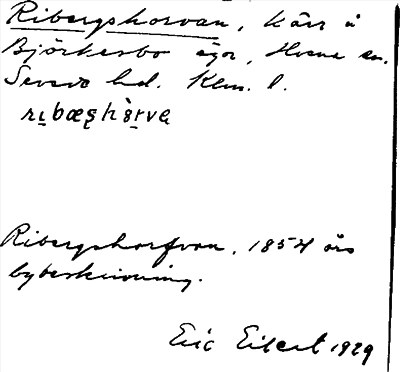 Ribergshorvan, Kärr å
Björkesbo ägor, Hvena sn.
Sevede hd. Klm. l.
rɩbæʂhòrva
Ribergshorfvan, 1854 års
bybeskrivning.
Eric Eilert 1929